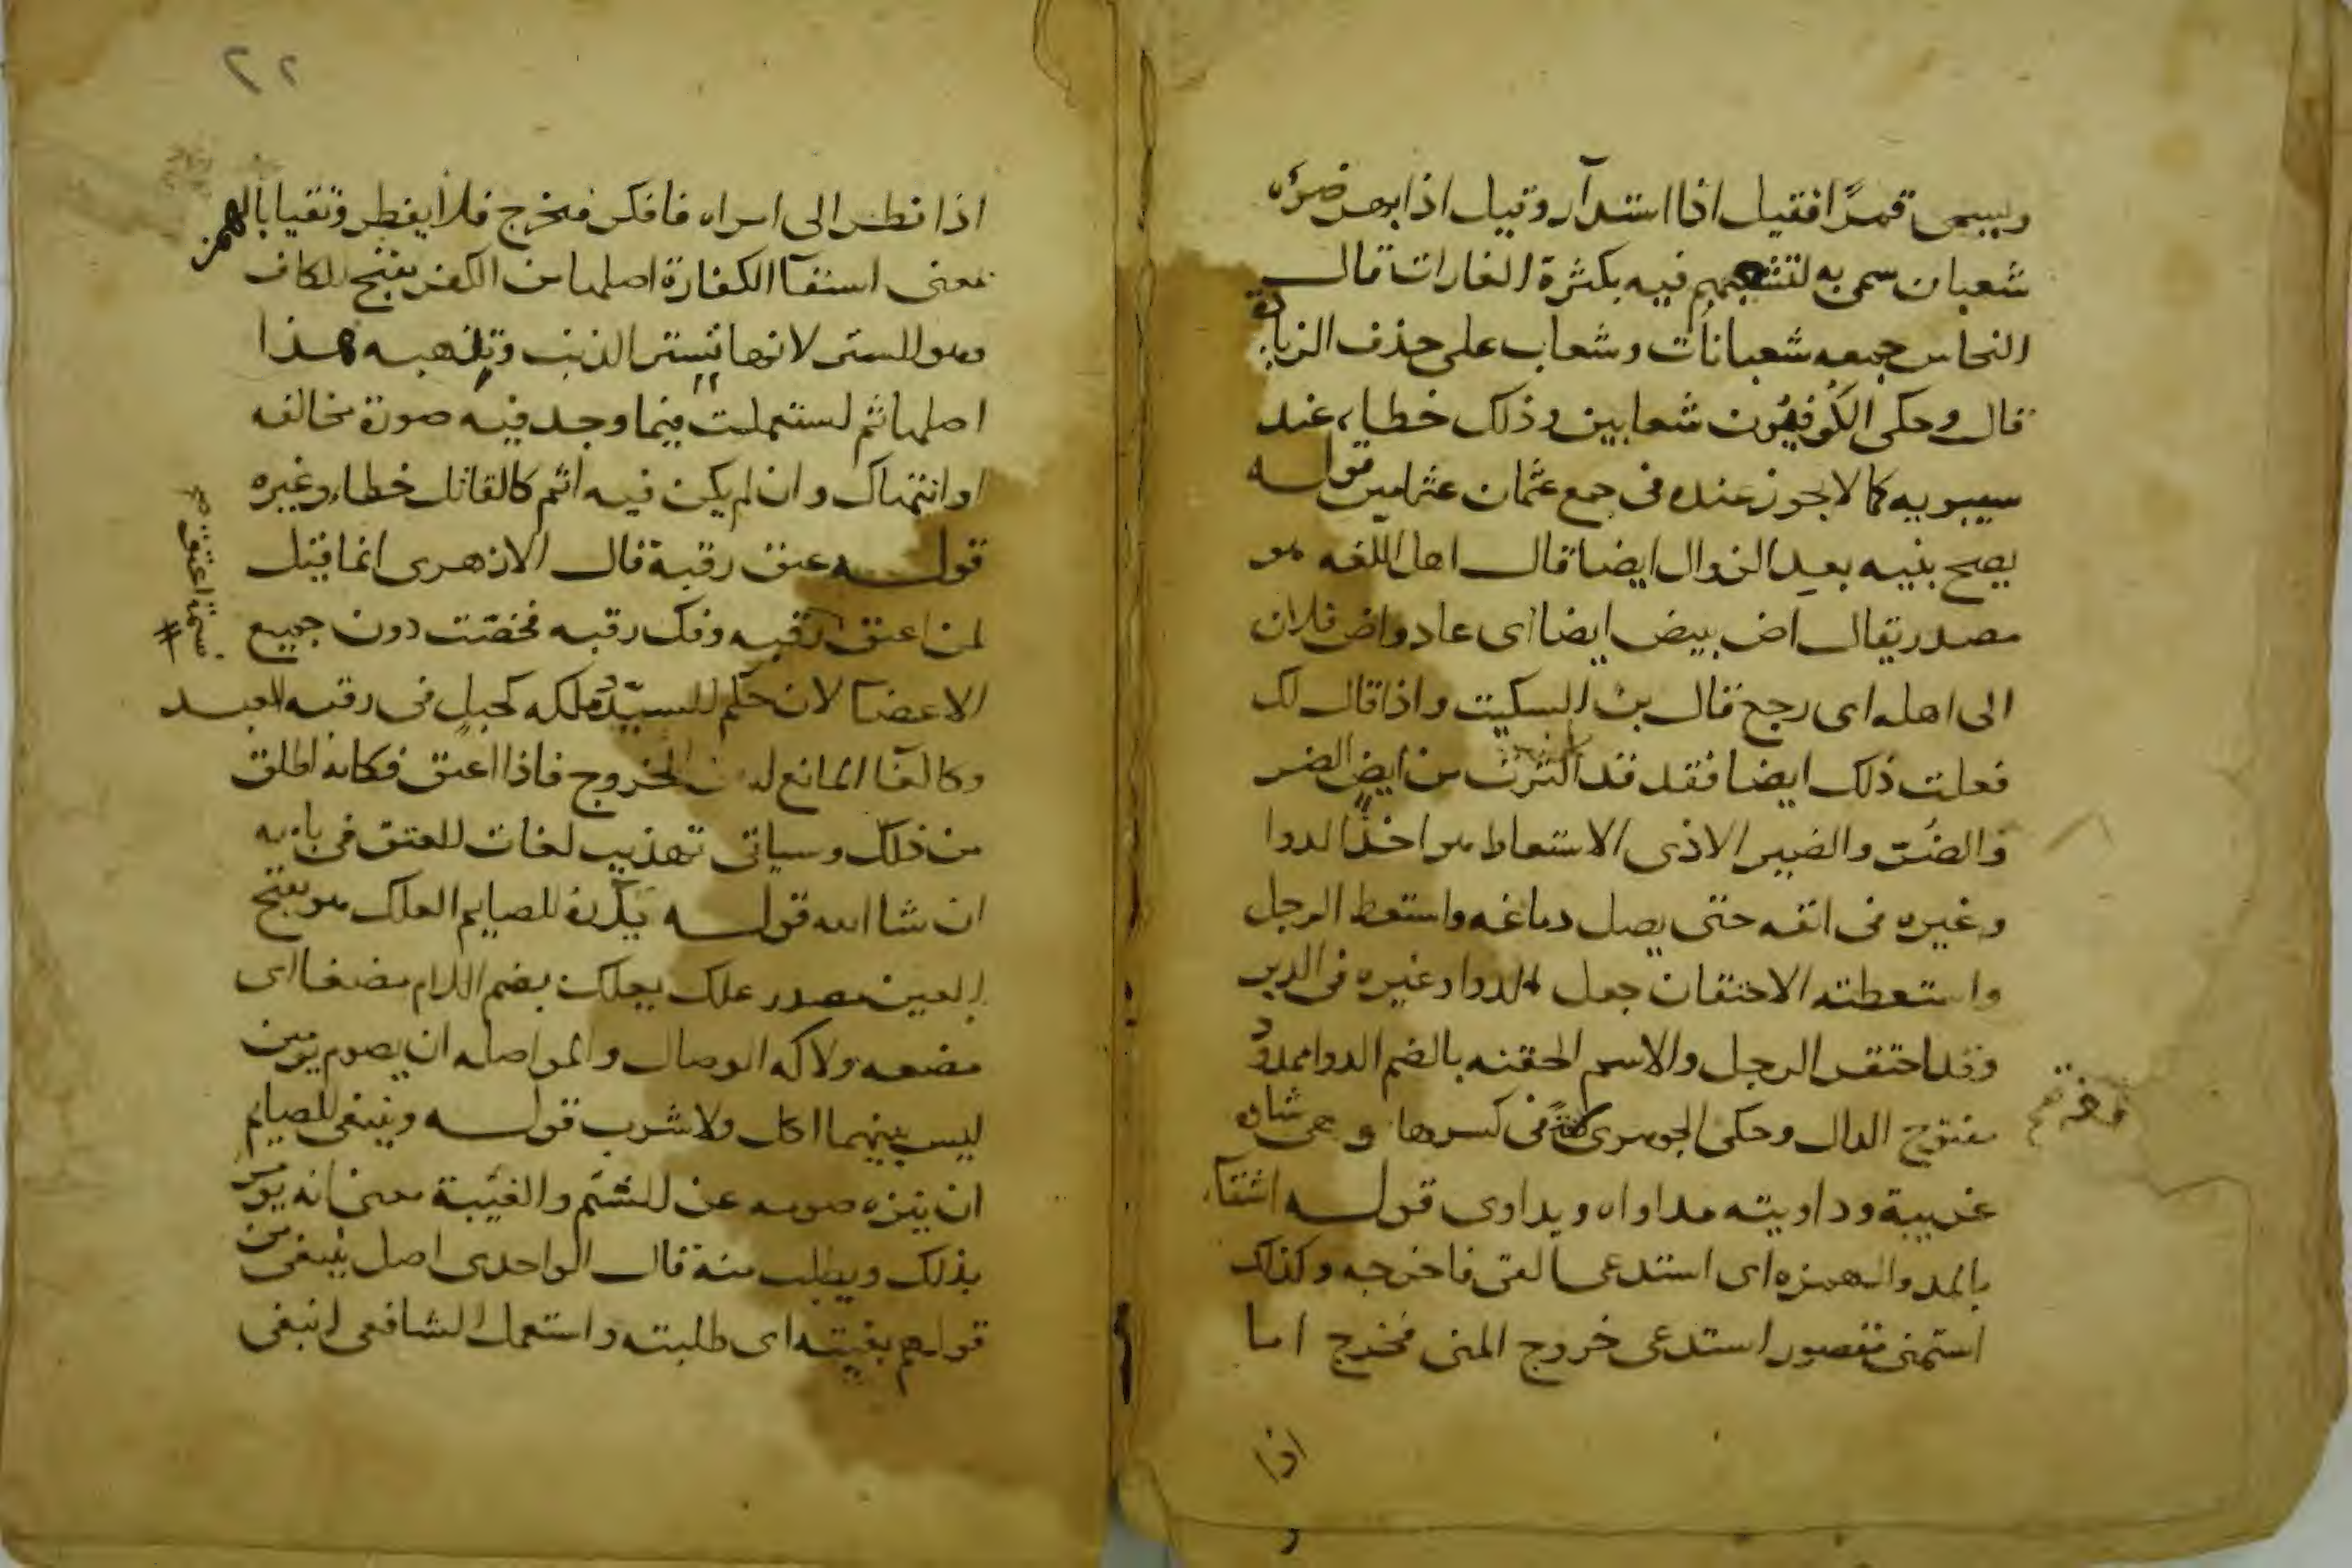 ويسمى قمرًا فقيل اذا استدآر وقيل اذا ابهر ضوءه
شعبان سمى به لتشعبهم فيه بكثرة الغارات قال
النحاس جمعه شعبانات وشعاب على حذف الزيادة
قال وحكى الكوفيون شعابين وذلك خطاء عند
سيبويه كما لا يجوز عنده فى جمع عثمان عثامين قوله
يصح بنيه بعد الزوال ايضا قال اهل اللغه هو
مصدر يقال اض بيض ايضا اى عاد واض فلان
الى اهله اى رجع قال بن السكيت واذا قال لك
فعلت ذلك ايضا فقد اكثرت من ايضٍ الضر
والضُر والضير الاذى الاستعاط هو اخذ الدوا
وغيره فى انفه حتى يصل دماغه واستعط الرجل
واستعطته الاحتقان جعل الدوا وغيره فى الدبر
وقد احتقن الرجل والاسم الحقنه بالضم الدوا ممدودٌ
مفتوح الدال وحكى الجوهرى لغةً فى كسرها وهى شاذه
غريبة وداويته مداواه ويداوى قوله استقآء
بالمد والهمزه اى استدعى القى فاخرجه وكذلك
استمنى مقصور استدعى خروج المنى فخرج اما
اذا
٢٢
اذا نظر الى امراه فافكر فخرج فلا يفطر وتقيا بالهمز
بمعنى استقآ الكفارة اصلها من الكفر بفتح الكاف
وهو الستر لانها تستر الذنب وتذهبه هذا
اصلها ثم استعملت فيما وجد فيه صورة مخالفه
او انتهاك وان لم يكن فيه اثم كالقاتل خطاء وغيره
قوله عتق رقبة قال الازهرى انما قيل
لمن اعتق رقبه وفك رقبه فخصّت دون جميع
الاعضا لان حكم السيّد وملكه كحبلٍ فى رقبه العبد
وكالغل المانع له من الخروج فاذا اعتق فكانه اطلق
من ذلك وسياتى تهذيب لغات العتق فى بابه
ان شا الله قوله يكره للصايم العلك هو بفتح
العين مصدر علك يعلك بضم اللام مضغا اى
مضغه ولاكه الوصال والمواصله ان يصوم يومين
ليس بينهما اكل ولا شرب قوله وينبغى للصايم
ان ينزه صومه عن الشتم والغيبة معنى انه يومر
بذلك ويطلب منه قال الواحدى اصل ينبغى من
قولهم بغيته اى طلبته واستعمل الشافعى انبغى